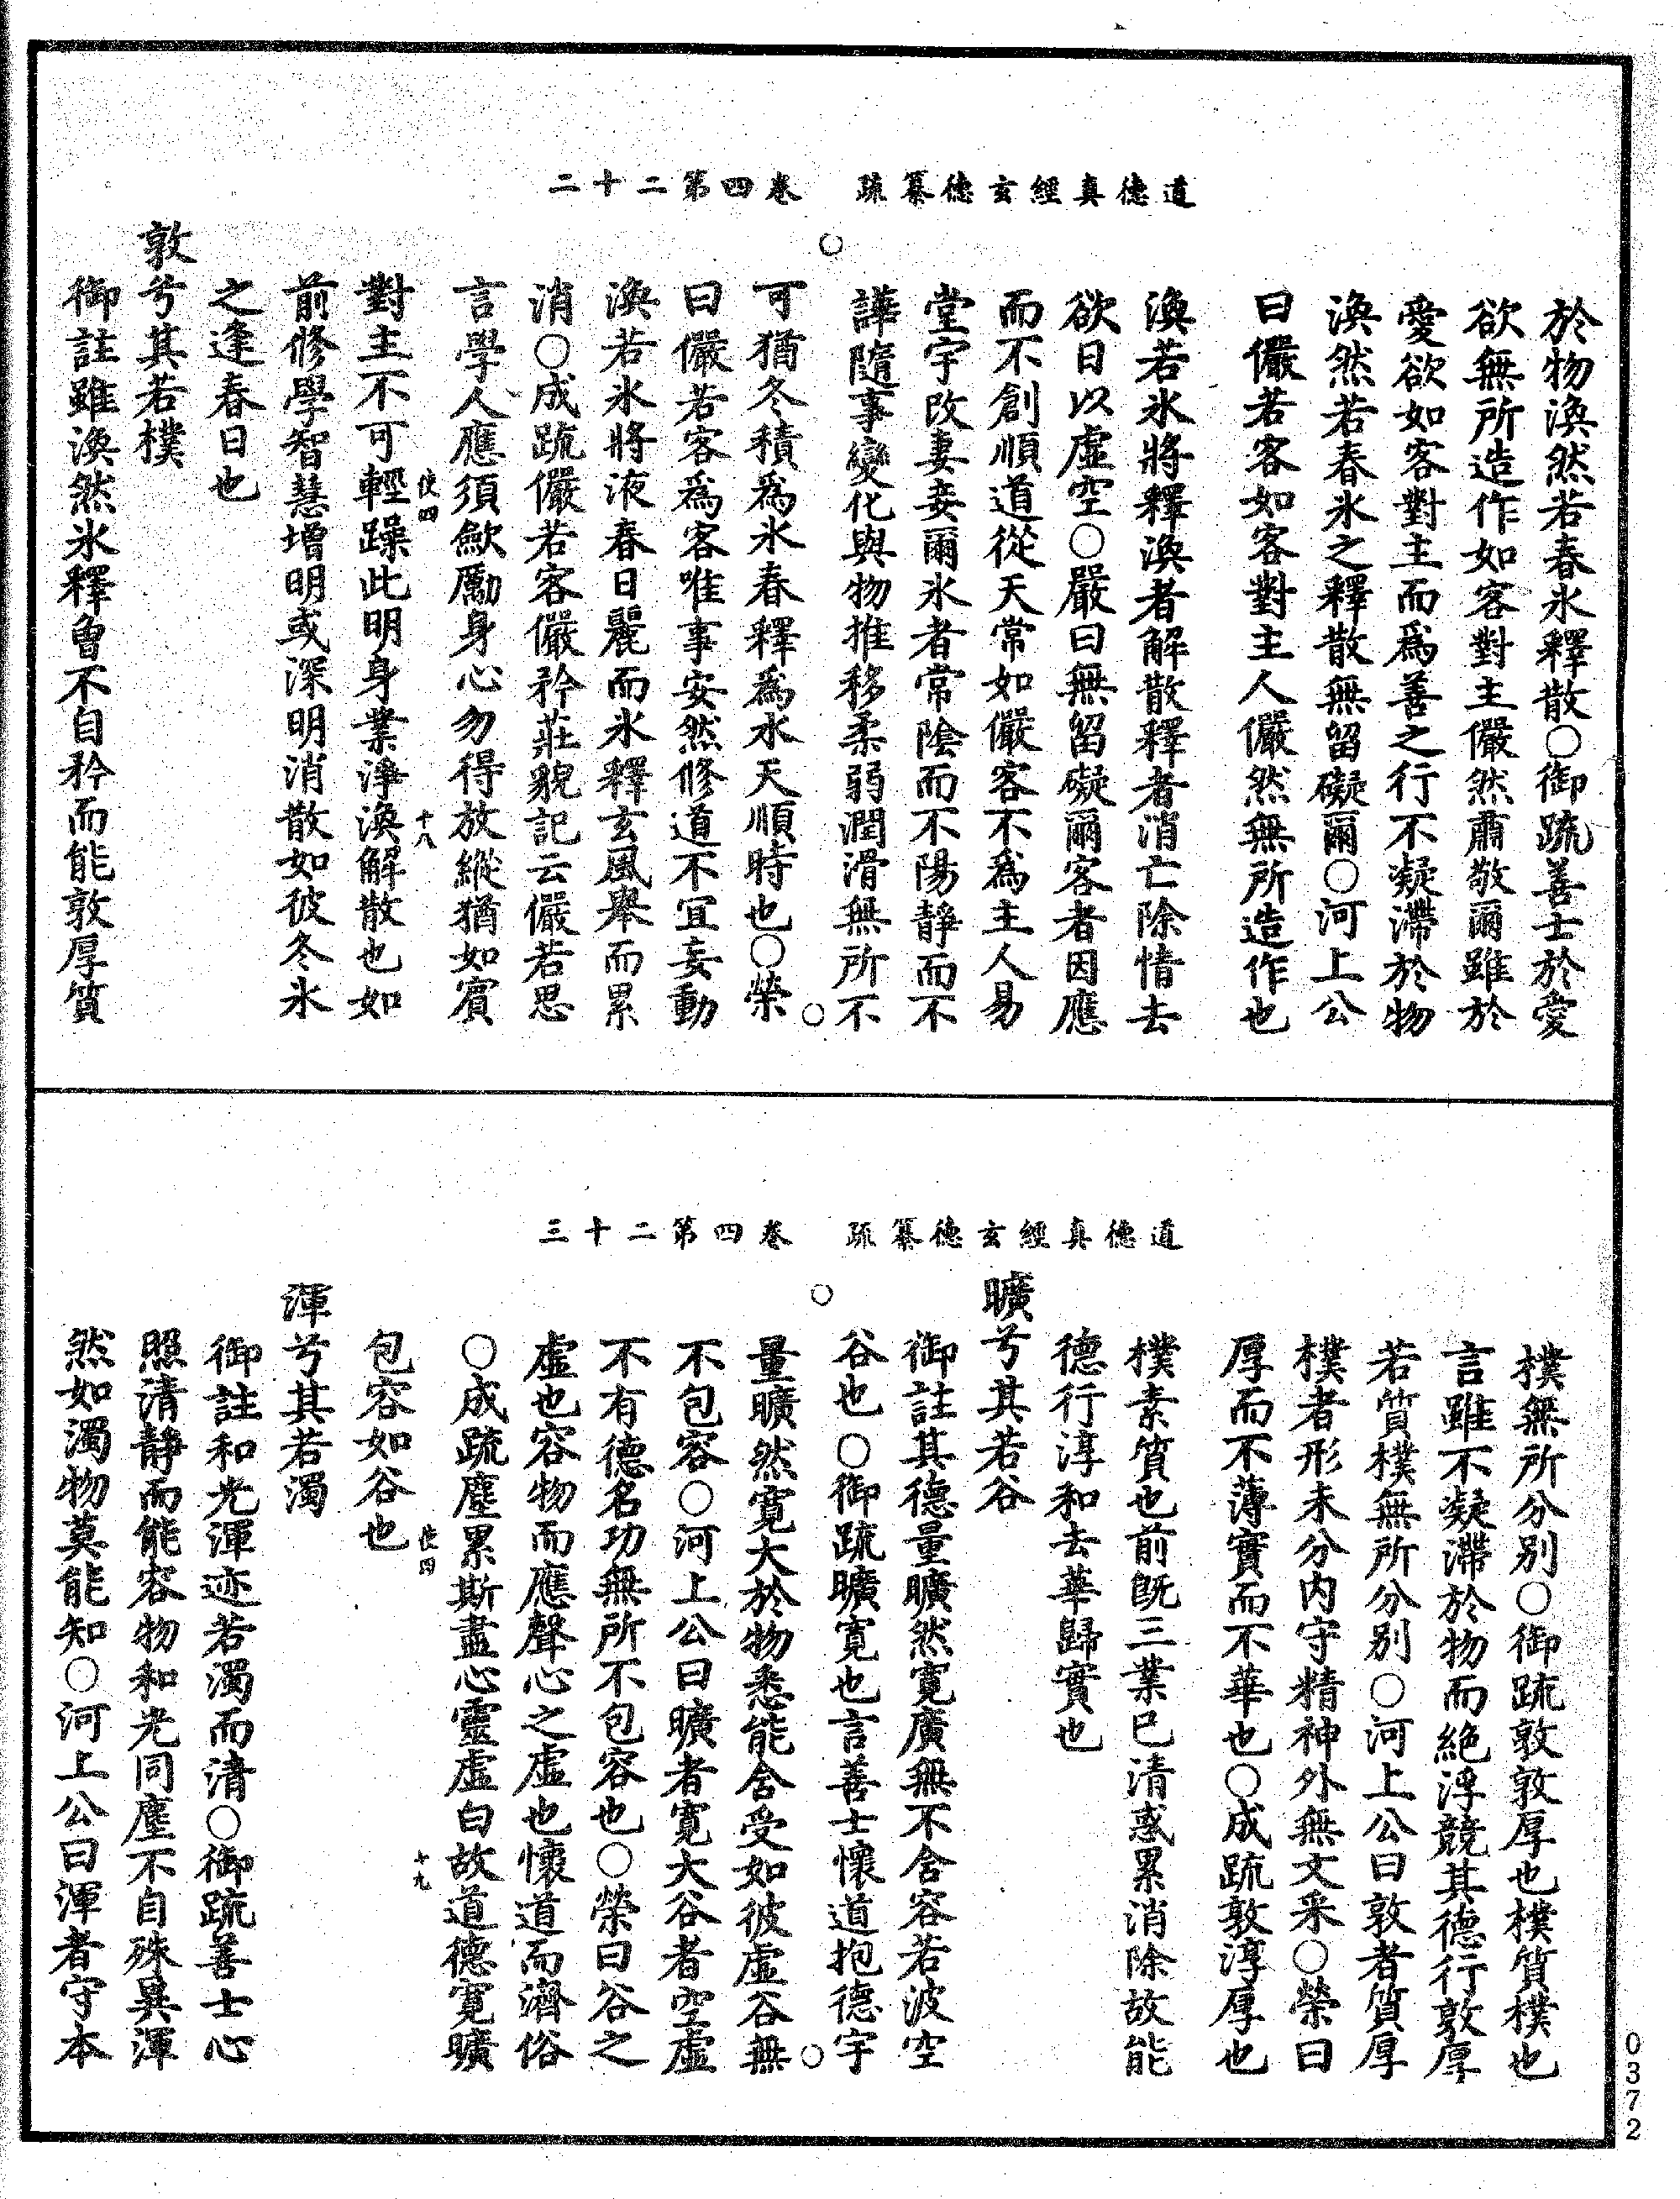 道德真經玄德纂疏　卷四第二十二
於物渙然若春氷釋散○御疏善士於愛
欲無所造作如客對主儼然肅敬爾雖於
愛欲如客對主而爲善之行不凝滯於物
渙然若春氷之釋散無留礙爾○河上公
曰儼若客如客對主人儼然無所造作也
渙若氷將釋渙者解散釋者消亡除情去
欲日以虛空○嚴曰無留礙爾客者因應
而不創順道從天常如儼客不爲主人易
堂宇改妻妾爾氷者常陰而不陽靜而不
譁隨事變化與物推移柔弱潤滑無所不
可猶冬積爲氷春釋爲水天順時也○榮
曰儼若客爲客唯事安然修道不宜妄動
渙若氷將液春日麗而氷釋玄風舉而累
消○成疏儼若客儼矜莊貌記云儼若思
言學人應須斂勵身心勿得放縱猶如賓
對主不可輕躁此明身業淨渙解散也如
使四　十八
前修學智慧增明或深明消散如彼冬氷
之逢春日也
敦兮其若樸
御註雖渙然氷釋曾不自矜而能敦厚質
道德真經玄德纂疏　卷四第二十三
樸無所分別○御疏敦敦厚也樸質樸也
言雖不凝滯於物而絕浮競其德行敦厚
若質樸無所分別○河上公曰敦者質厚
樸者形未分內守精神外無文采○榮曰
厚而不薄實而不華也○成疏敦淳厚也
樸素質也前既三業已清惑累消除故能
德行淳和去華歸實也
曠兮其若谷
御註其德量曠然寬廣無不含容若波空
谷也○御疏曠寬也言善士懷道抱德宇
量曠然寬大於物悉能含受如彼虛谷無
不包容○河上公曰曠者寬大谷者空虛
不有德名功無所不包容也○榮曰谷之
虛也容物而應聲心之虛也懷道而濟俗
○成疏塵累斯盡心靈虛白故道德寬曠
使四　十九
包容如谷也
渾兮其若濁
御註和光渾迹若濁而清○御疏善士心
照清靜而能容物和光同塵不自殊異渾
然如濁物莫能知○河上公曰渾者守本
0372